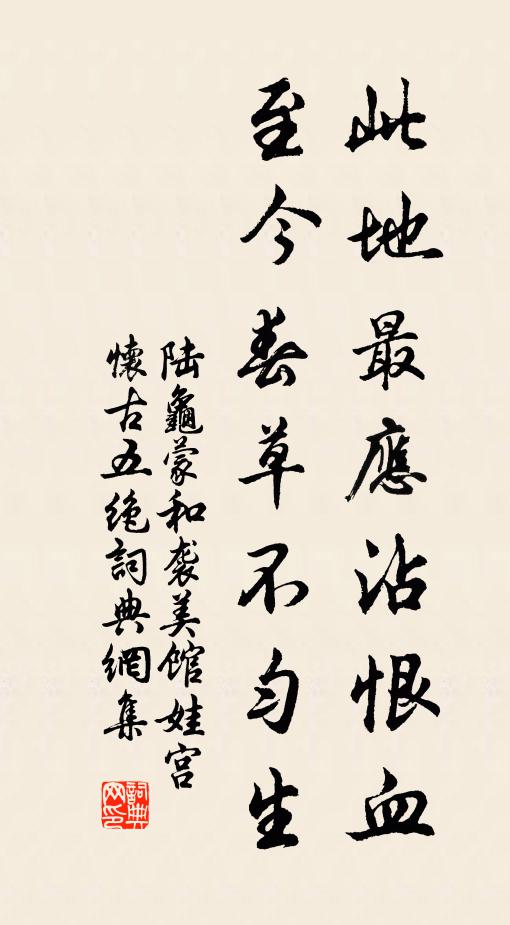 此地最應沾恨血
至今春草不勻生
陸龜蒙和袭美馆娃宮
懷古五绝詞典網集
詞典网印